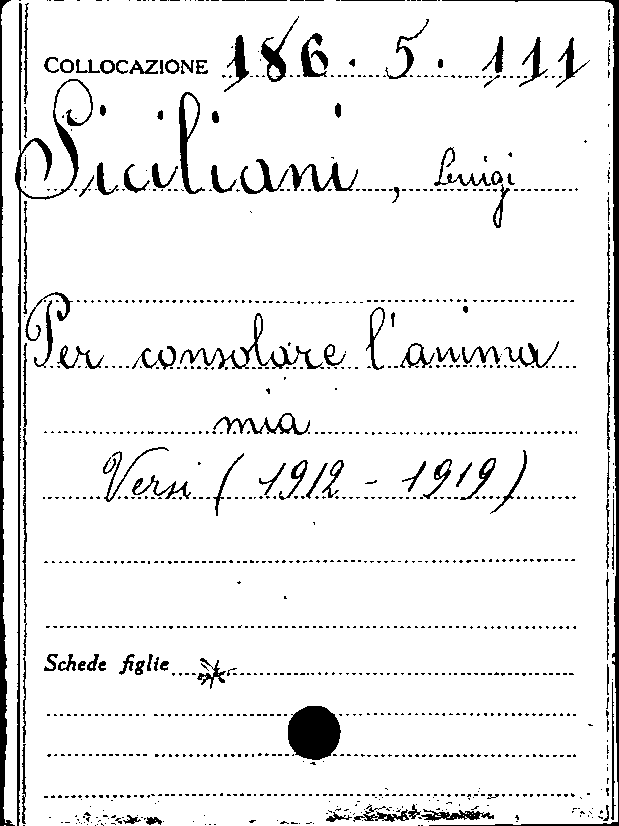 COLLOCAZIONE 186. 5. 111
Siciliani, Luigi
Per consolare l'anima
mia
Versi (1912 - 1919)
Schede figlie